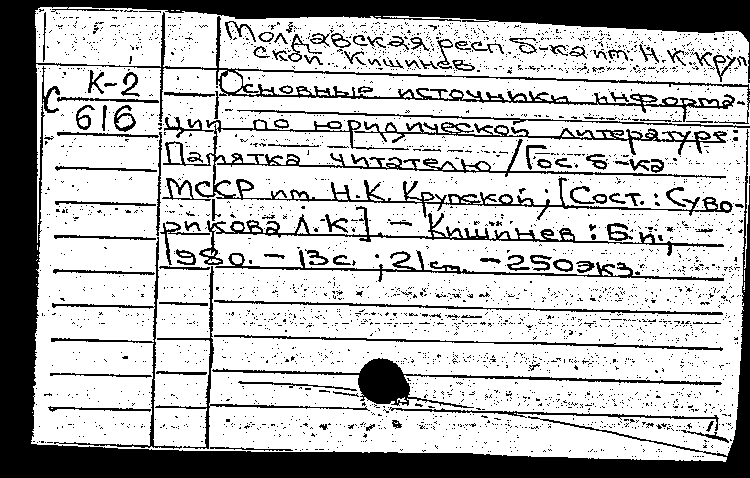 Молдавская респ. б-ка им. Н.К. Круп
ской. Кишинев.
К-2
Основные источники информа-
С
616
ции по юридической литературе:
Памятка читателю / Гос. б-ка
МССР им. Н.К. Крупской; [Сост.: Суво-
рикова Л.К.]. – Кишинев : Б.и.,
1980. – 13 с. ; 21 см. – 250 экз.